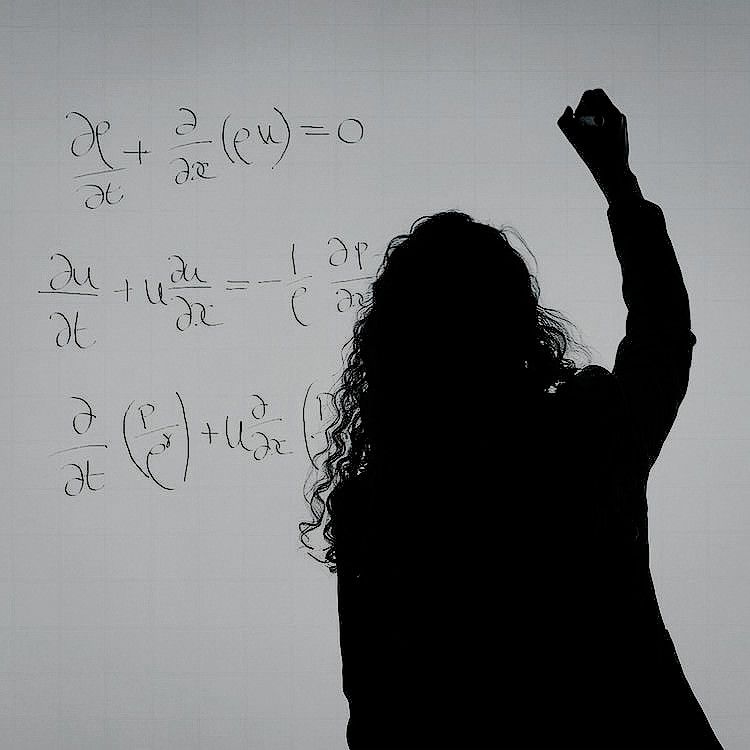 ∂ρ/∂t + ∂/∂x (ρu) = 0
∂u/∂t + u ∂u/∂x = - 1/ρ ∂p/∂x
∂/∂t (p/ρ^γ) + u ∂/∂x (p